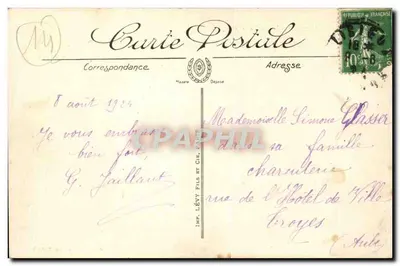 14
Carte Postale
Correspondance
Adresse
RÉPUBLIQUE FRANÇAISE
10
8 août 1924
Je vous embrasse
bien fort,
G. Jaillant
Mademoiselle Simone Glaisser
dans sa famille
charcuterie
rue de l'Hôtel de Ville
Troyes
(Aube)
IMP. LÉVY FILS ET CIE,
CPAPHIL